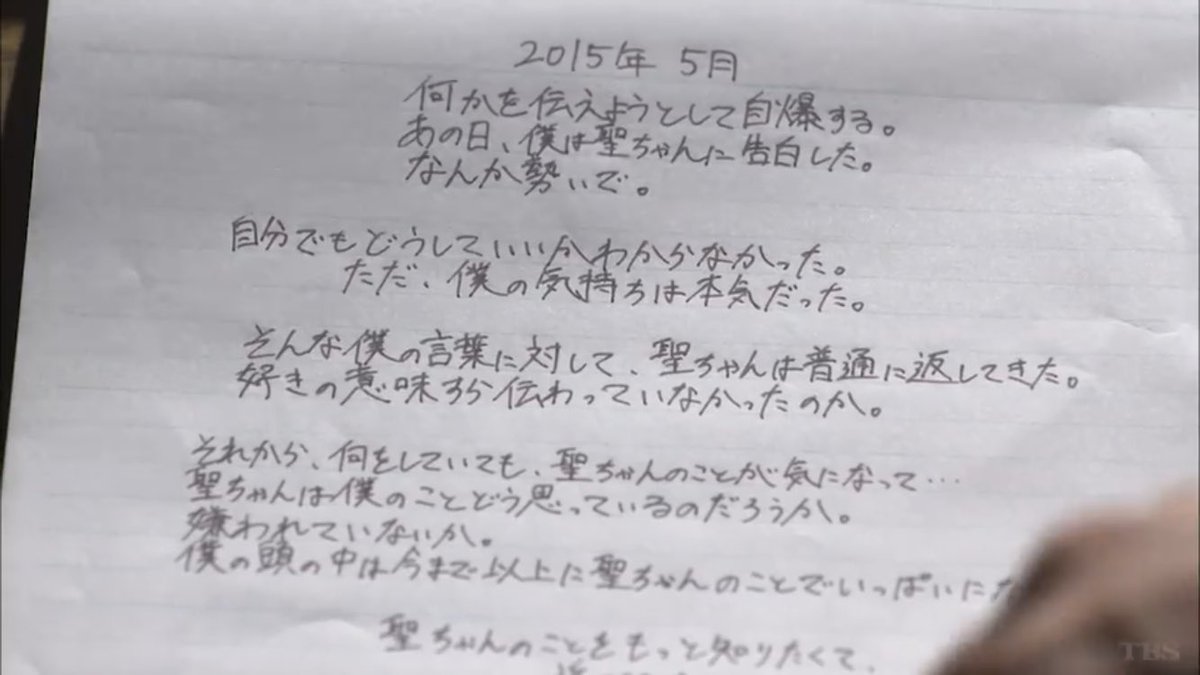 2015年 5月
何かを伝えようとして自爆する。
あの日、僕は聖ちゃんに告白した。
なんか勢いで。
自分でもどうしていいかわからなかった。
ただ、僕の気持ちは本気だった。
そんな僕の言葉に対して、聖ちゃんは普通に返してきた。
好きの意味すら伝わっていなかったのか。
それから、何をしていても、聖ちゃんのことが気になって…
聖ちゃんは僕のことどう思っているのだろうか。
嫌われていないか。
僕の頭の中は今まで以上に聖ちゃんのことでいっぱいにな
聖ちゃんのことをもっと知りたくて、
TBS